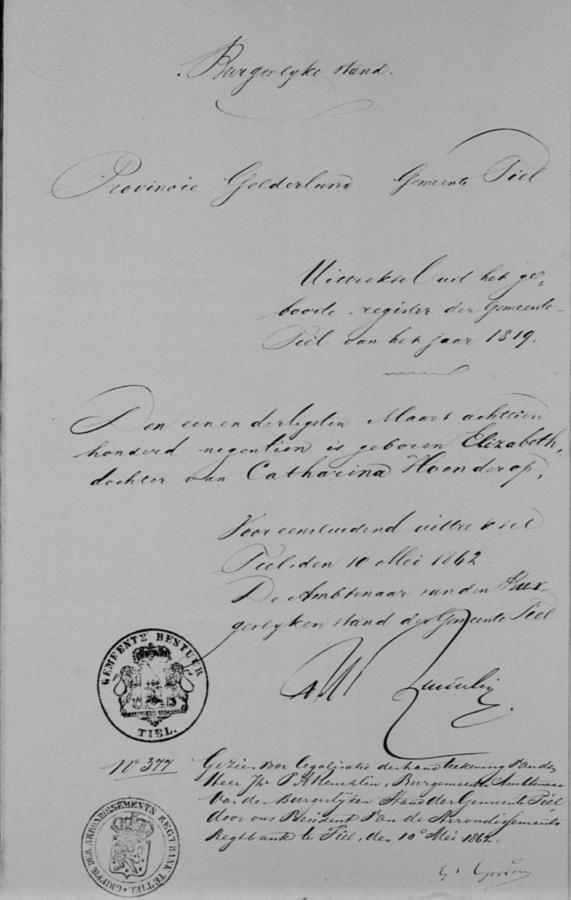 Burgerlyke stand.
Provincie Gelderland Gemeente Tiel
Uittreksel uit het ge-
boorte-register der Gemeente
Tiel van het jaar 1819.
Den een en dertigsten Maart achttien
honderd negentien is geboren Elizabeth,
dochter van Catharina Hoenderop.
Voor eensluidend uittreksel
Tiel den 10 Mei 1862
De Ambtenaar van den Bur-
gerlyken stand der Gemeente Tiel
GEMEENTE BESTUUR
TIEL.
N° 377
Gezien voor legalisatie der handteekening van den
Heer Jhr Reuchlin, Burgemeester Ambtenaar
van den Burgerlijken Stand der Gemeente Tiel
door ons President van de Arrondissements
Regtbank te Tiel, den 10 Mei 1862.
GRIFFIE DER ARRONDISSEMENTS REGTBANK TE TIEL